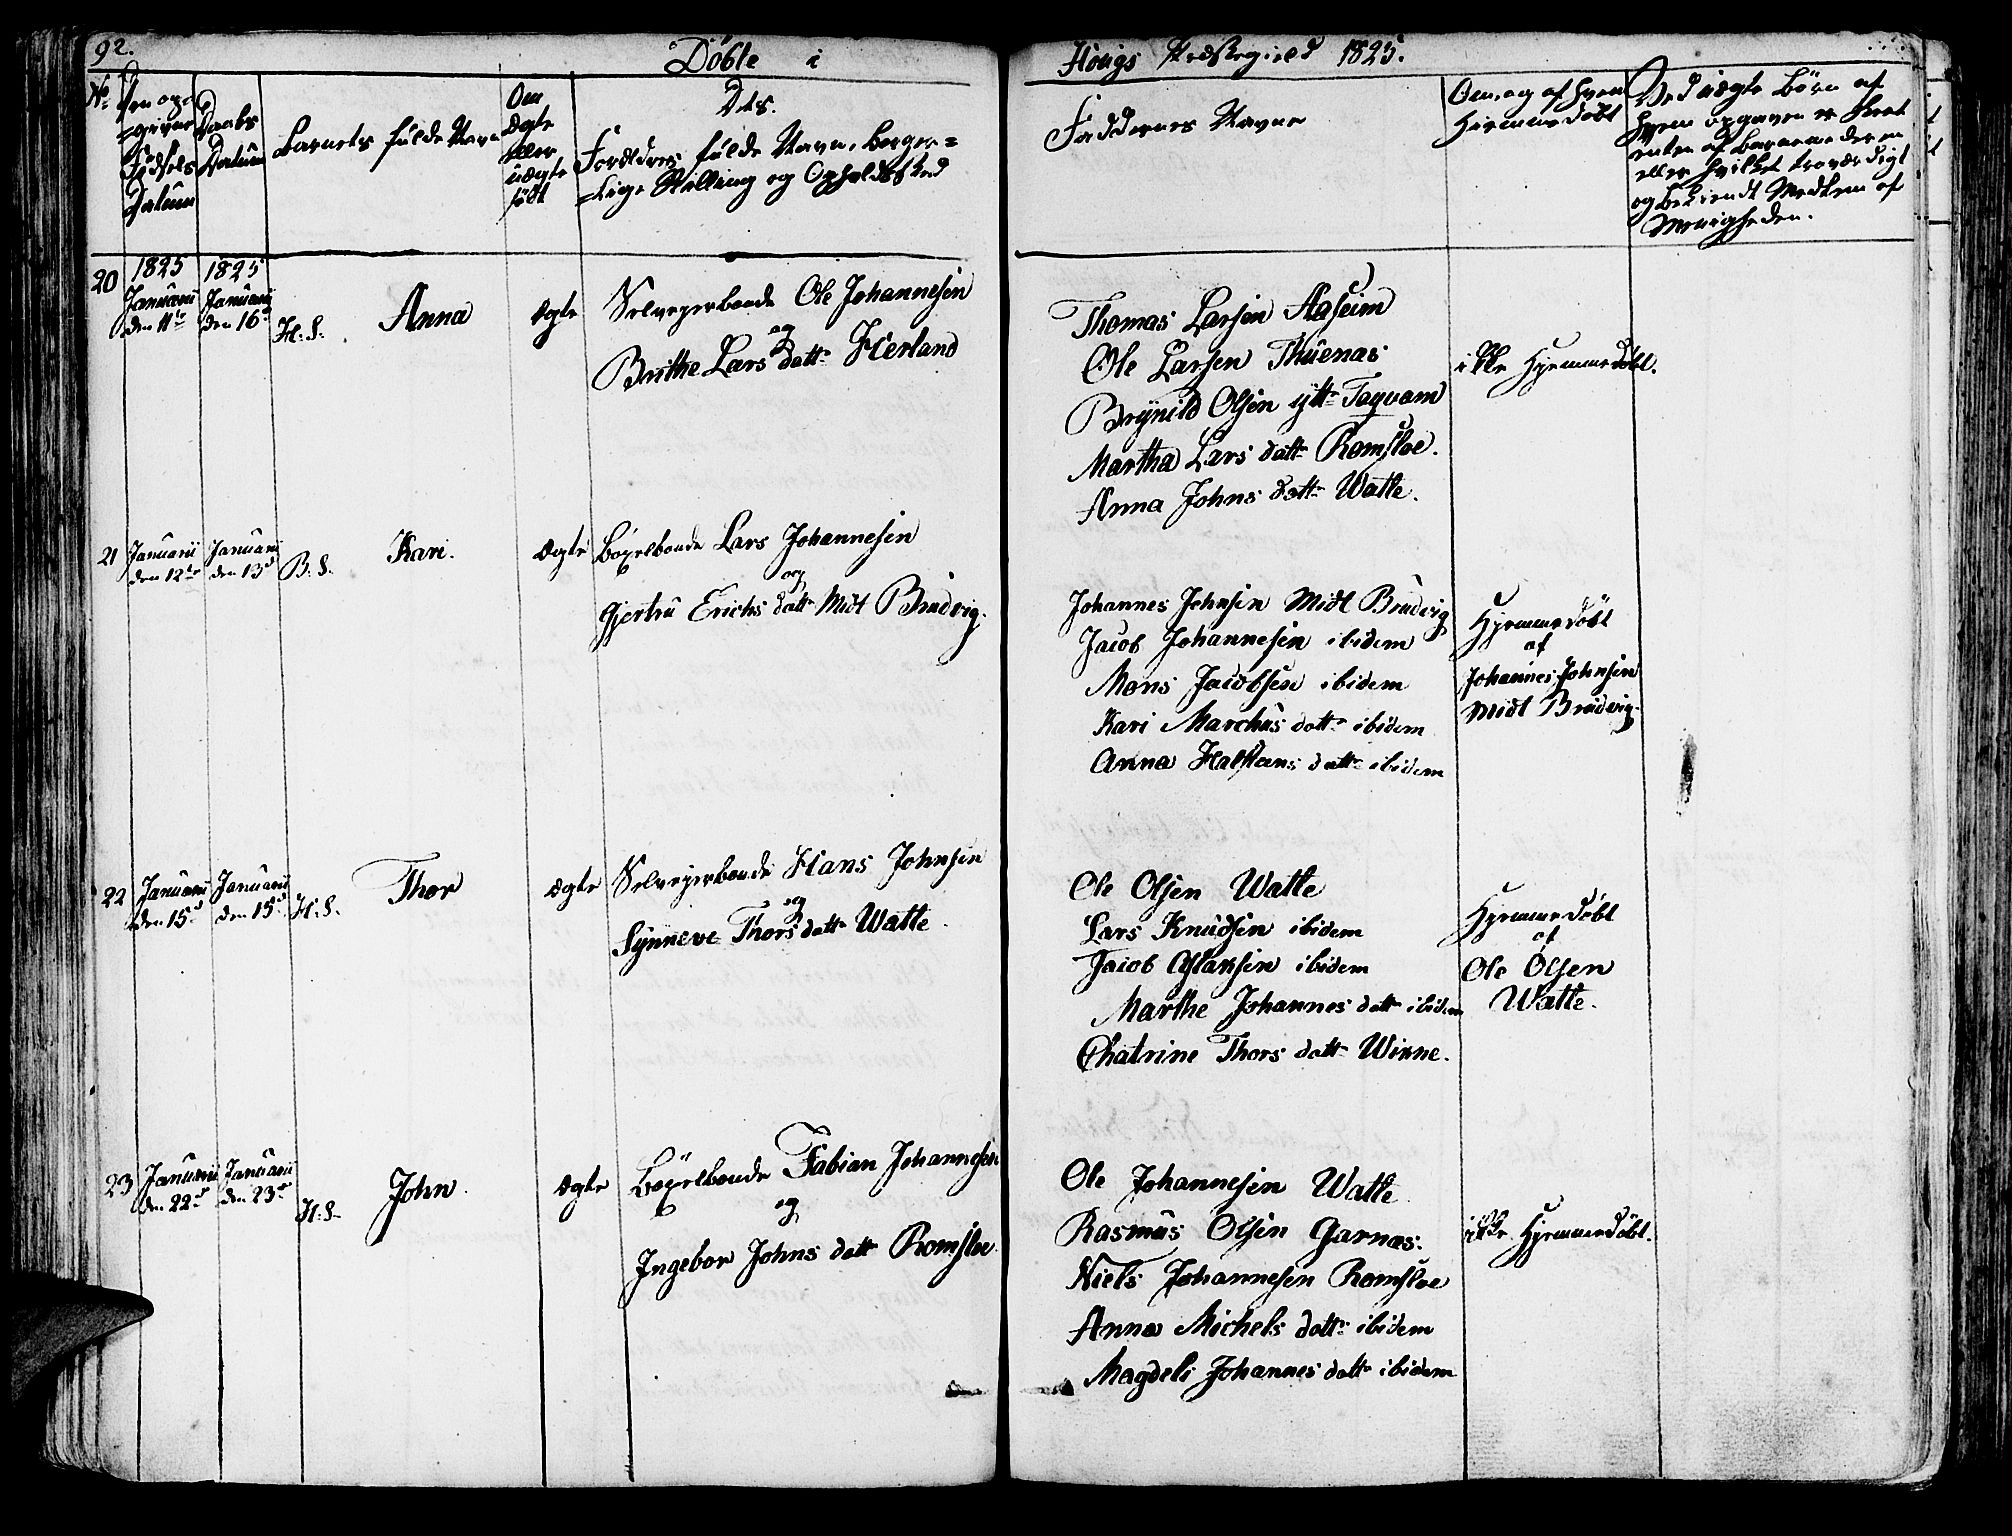 92.
Döbte i
Hougs Præstegield 1825.
No
Den op=
=givne
Födsels
Datum
Daabs
Datum
Barnets fulde Navn
Om
ægte
eller
uægte
födt
Dts.
Forældres fulde Navn, borger=
=lige Stilling og Opholdssted
Faddernes Navne
Om, og af hvem
hiemmedöbt
Ved uægte Börn af
hvem opgaven er skeet
enten af Barnemoderen
eller hvilket troværdigt
og bekiendt Medlem af
Menigheden.
20
1825
Januarii
den 11te
1825
Januarii
den 16d
H. S.
Anna
ægte
Selvejerbonde Ole Johannesen
og
Brithe Lars datt. Herland
Thomas Larsen Aaseim
Ole Larsen Thuenæs
Brynild Olsen ytt. Taquam
Martha Lars datt. Romsloe.
Anna Johns datt. Watle.
ikke Hjemmedöbt.
21
Januarii
den 12te
Januarii
den 13d
B. S.
Kari.
ægte
Böxelbonde Lars Johannesen
og
Gjertru Erichs datt. Midt Brudvig.
Johannes Johnsen Midt Brudvig
Jacob Johannesen ibidem
Mons Jacobsen ibidem
Kari Marchus datt. ibidem
Anna Halstens datt. ibidem
Hjemmedöbt
af
Johannes Johnsen
Midt Brudvig.
22
Januarii
den 15d
Januarii
den 15d
H. S.
Thor
ægte
Selvejerbonde Hans Johnsen
og
Synneve Thors datt. Watle.
Ole Olsen Watle
Lars Knudsen ibidem
Jacob Aslaksen ibidem
Marthe Johannes datt. ibidem
Chatrine Thors datt. Winne.
Hjemmedöbt
af
Ole Olsen
Watle.
23
Januarii
den 22d
Januarii
den 23d
H. S.
John
ægte
Böxelbonde Fabian Johannesen
og
Ingebor Johns datt. Romsloe.
Ole Johannesen Watle
Rasmus Olsen Garnæs.
Niels Johannesen Romsloe
Anna Michels datt. ibidem
Magdeli Johannes datt. ibidem
ikke Hjemmedöbt.